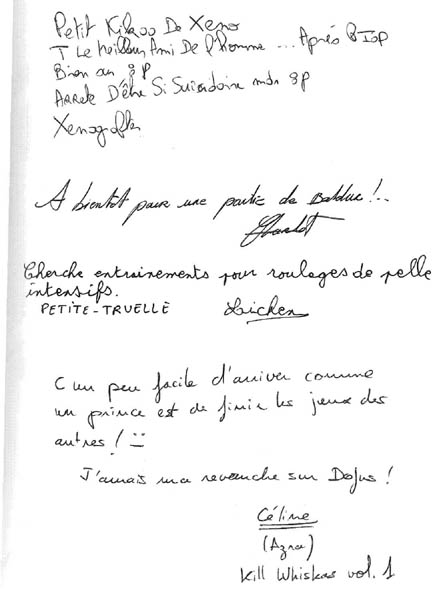 Petit Kikoo De Xeno
T Le Meilleur Ami De l'homme ... Après BIOP
Bien sur :P
Arrete D'être Si Suicidaire mdr :P
Xenografter
A bientôt pour une partie de Balduc !..
Cherche entrainements pour roulages de pelle
intensifs.
PETITE-TRUELLE Lichen
C un peu facile d'arriver comme
un prince est de finir les jeux des
autres !
J'aurais ma revanche sur Dofus !
Céline
(Azra)
Kill Whiskas vol. 1